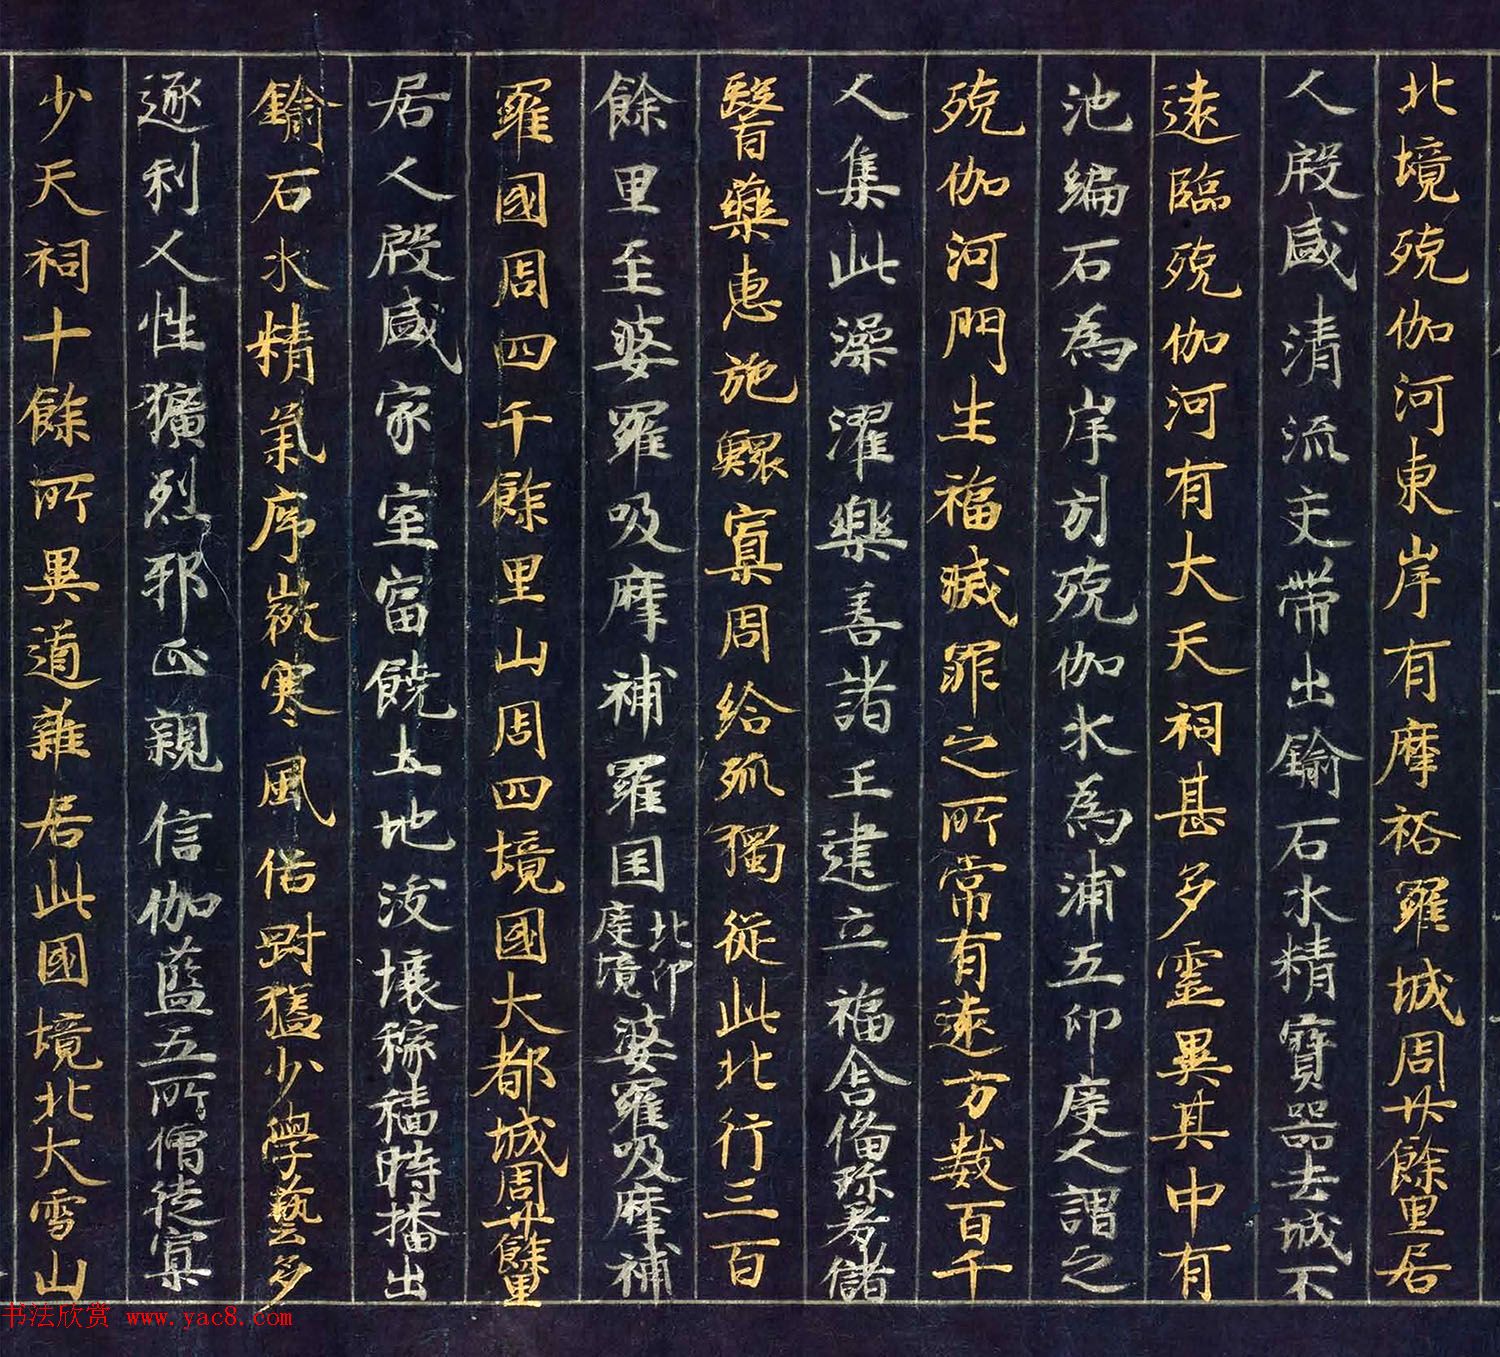 北境殑伽河東岸有摩裕羅城周廿餘里居
人殷盛清流交帶出鍮石水精寶器去城不
遠臨殑伽河有大天祠甚多靈異其中有
池編石為岸引殑伽水為浦五印度人謂之
殑伽河門生福滅罪之所常有遠方數百千
人集此澡濯樂善諸王建立福舍備珍羞儲
醫藥惠施鰥寡周給孤獨從此北行三百
餘里至婆羅吸摩補羅国北印度境婆羅吸摩補
羅國周四千餘里山周四境國大都城周廿餘里
居人殷盛家室富饒土地沃壤稼穡時播出
鍮石水精氣序微寒風俗剛猛少學藝多
逐利人性獷烈邪正親信伽藍五所僧徒寡
少天祠十餘所異道雜居此國境北大雪山
书法欣赏 www.yac8.com